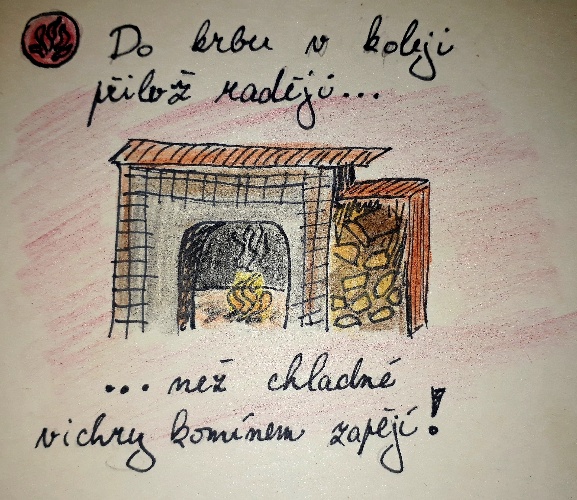 Do krbu v koleji
přilož raději...
... než chladné
vichry komínem zapějí!